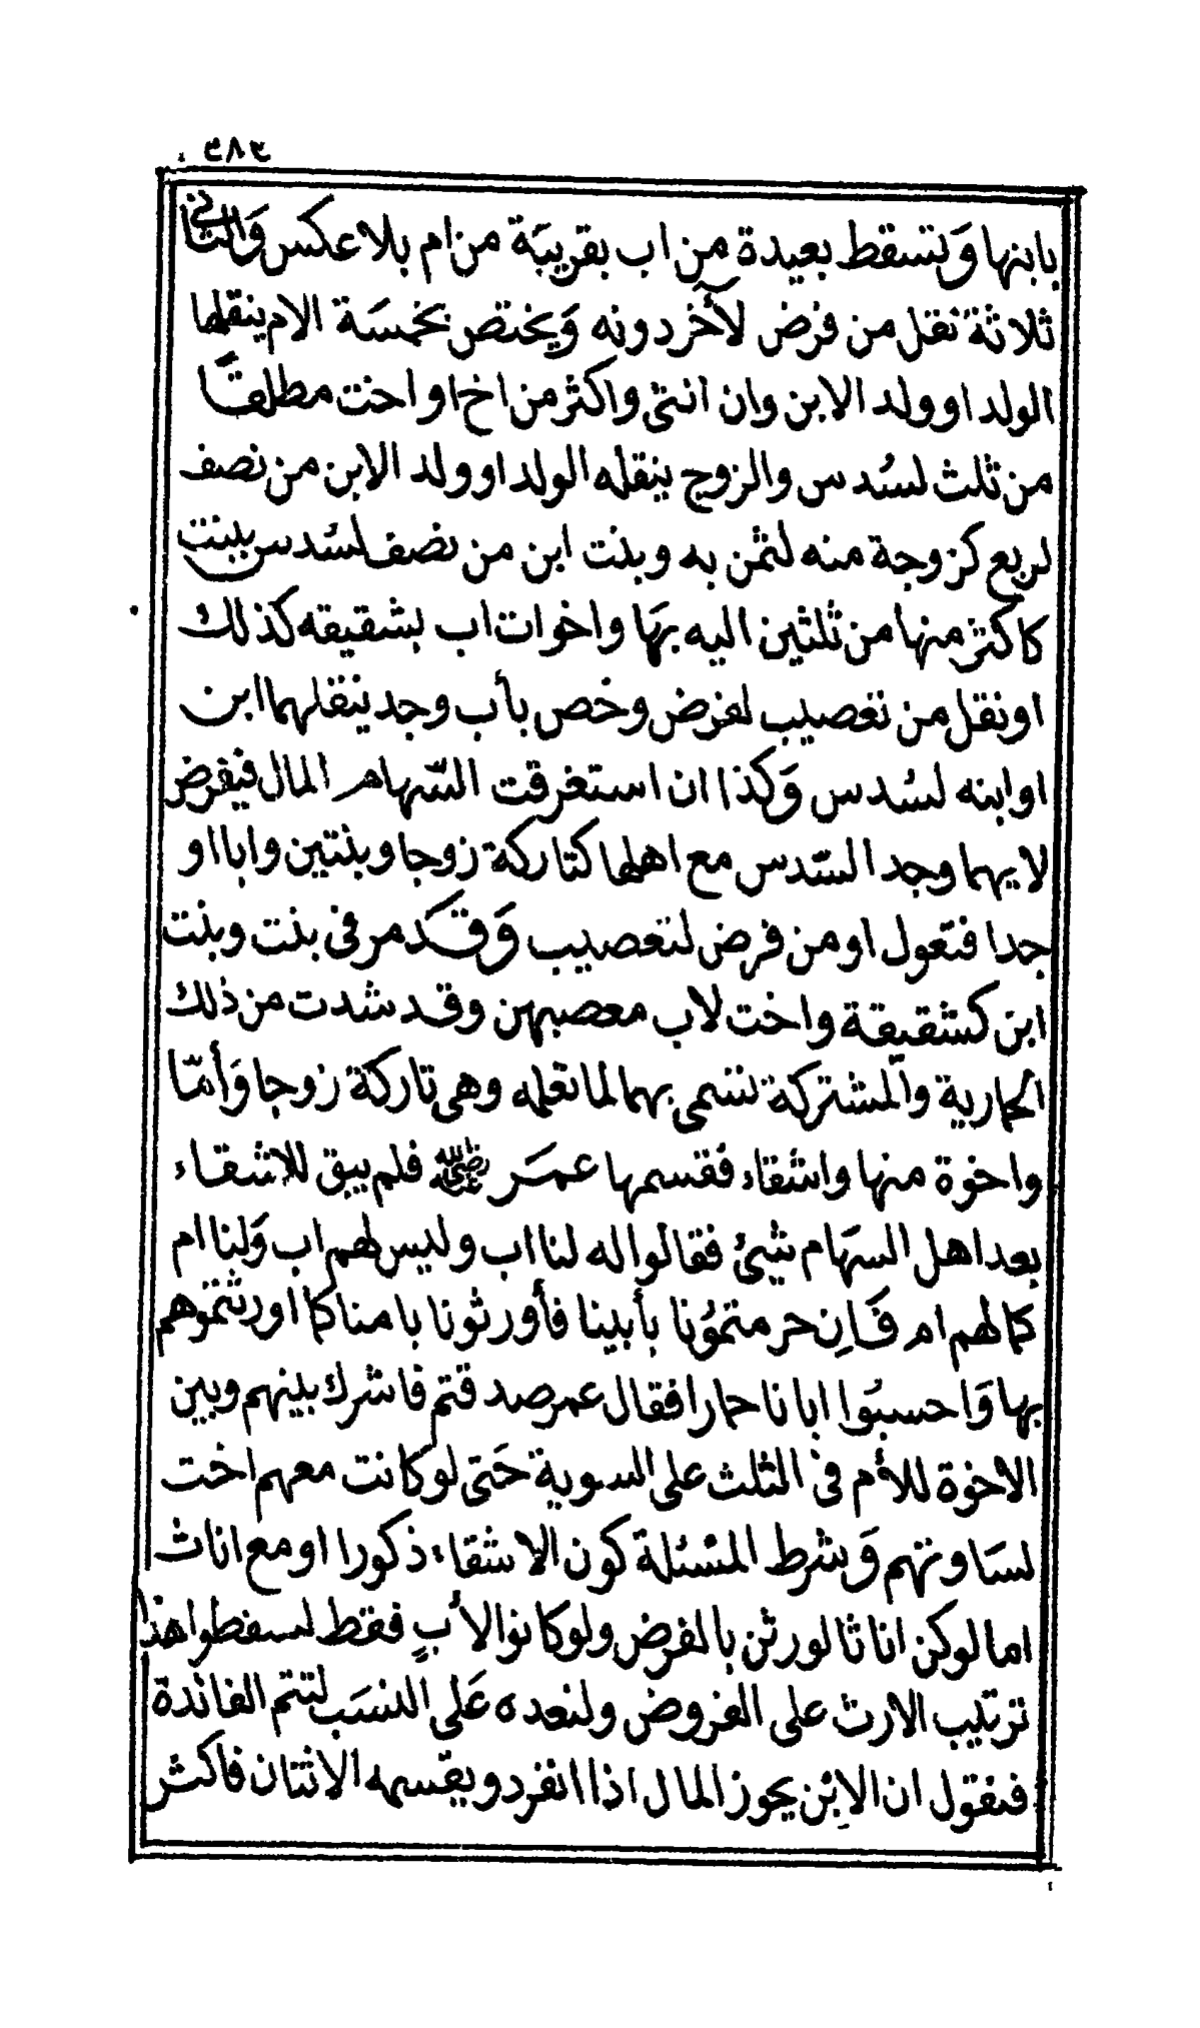 ٣٨٣
بابنها وَتسقط بعيدة من اب بقريبَة من ام بلا عكس وَالثاني
ثلاثة نقل من فرض لآخر دونه وَيختص بخمسَة الام ينقلها
الولد او ولد الابن وان انثى واكثر من اخ او اخت مطلقًا
من ثلث لسُدس والزوج ينقله الولد او ولد الابن من نصف
لربع كزوجة منه لثمن به وبنت ابن من نصف لسُدس ببنت
كاكثر منها من ثلثين اليه بهَا واخوات اب بشقيقه كذلك
او نقل من تعصيب لفرض وخص بأب وجد ينقلهما ابن
او ابنه لسُدس وَكذا ان استغرقت السّهام المال فيفرض
لايهما وجد السّدس مع اهلها كتاركة زوجا وبنتين وابا او
جدا فتعول او من فرض لتعصيب وَقد مر فى بنت وبنت
ابن كشقيقة واخت لاب معصبهن وقد شدت من ذلك
الحمارية والمشتركة تسمى بهما لما تعلمه وهى تاركة زوجا وَأمّا
واخوة منها واشقاء فقسمها عمَر رضي الله عنه فلم يبق للاشقاء
بعد اهل السهَام شيئ فقالوا له لنا اب وليس لهم اب وَلنا ام
كما لهم ام فَاِن حرمتمُونا بأبينا فأورثونا بامنا كما اورثتموهم
بها وَاحسبُوا ابانا حمارا فقال عمر صدقتم فاشرك بينهم وبين
الاخوة للأم فى الثلث على السوية حَتى لو كانت معهم اخت
لسَاوتهم وَشرط المسئلة كون الاشقاء ذكورا او مع اناث
اما لو كن اناثا لورثن بالفرض ولو كانوا لأبٍ فقط لسقطوا هذا
ترتيب الارث على الفروض ولنعده عَلى النسَب لتتم الفائدة
فنقول ان الاِبن يحوز المال اذا انفرد ويقسمه الاثنان فاكثر